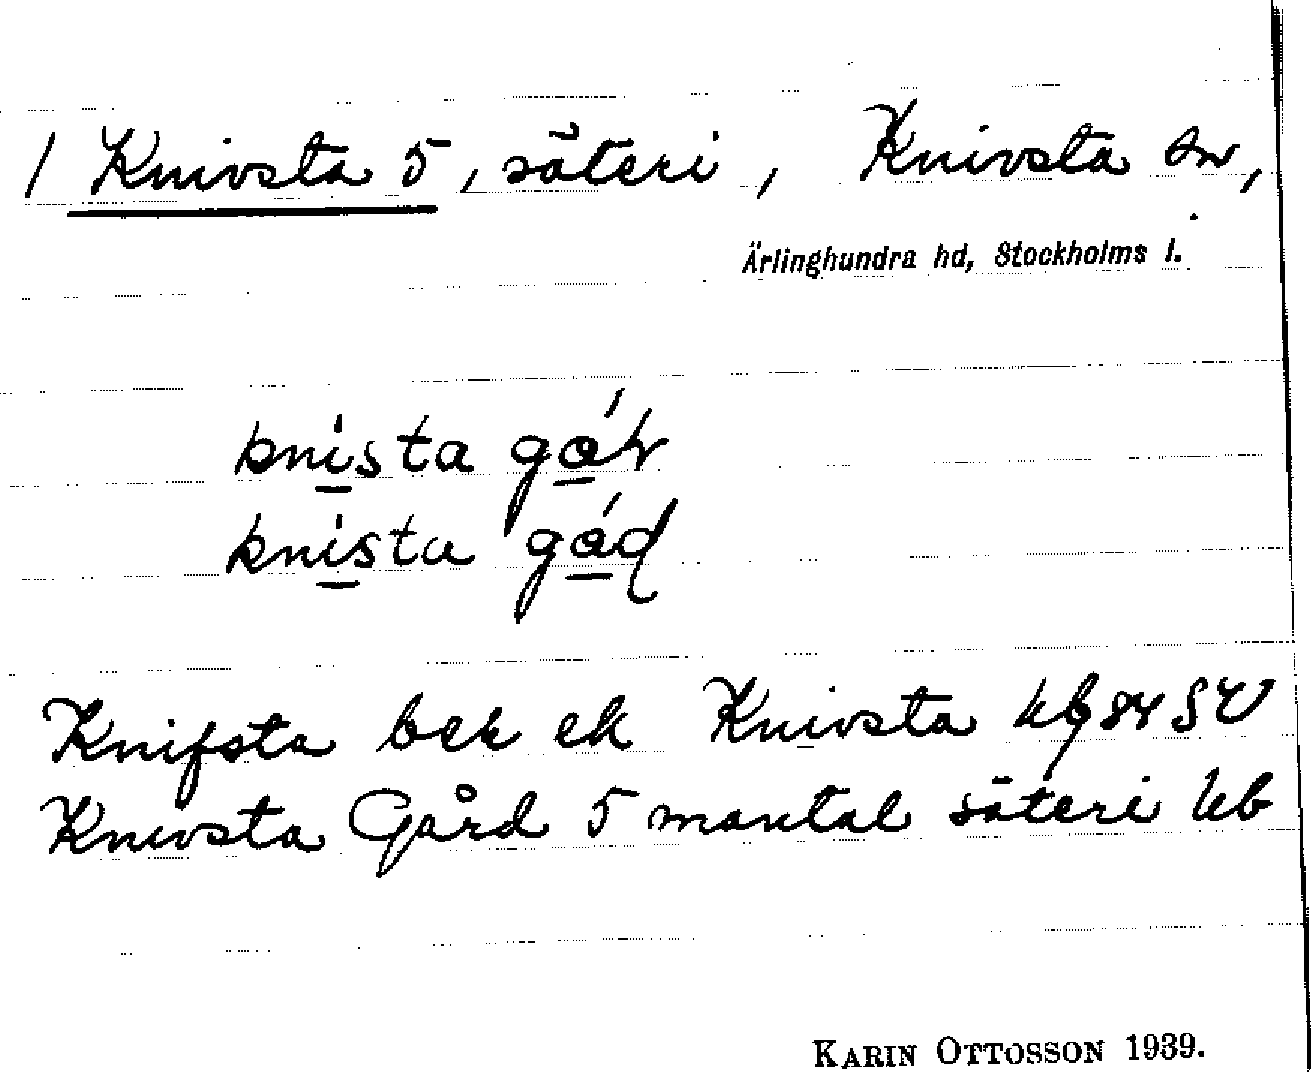 1 Knivsta 5, säteri, Knivsta sn,
Ärlinghundra hd, Stockholms l.
knista gó
knista gó
Knifsta bek ek Knivsta kg 84 SV
Knivsta Gård 5 mantal säteri kb
KARIN OTTOSSON 1939.